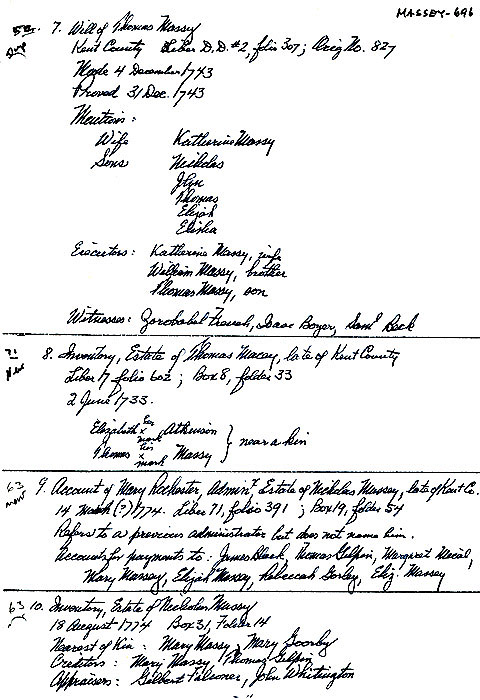 MASSEY-696
7. Will of Thomas Massy
Kent County Liber D.D. #2, folio 307; Orig No. 827
Made 4 December 1743
Proved 31 Dec. 1743
Mentions:
Wife Katherine Massy
Sons Nicholas
John
Thomas
Elijah
Elisha
Executors: Katherine Massy, wife
William Massy, brother
Thomas Massy, son
Witnesses: Zorobabel French, Isaac Boyer, Saml Beck
8. Inventory, Estate of Thomas Macey, late of Kent County
Liber 17 folio 602; Box 8, folder 33
2 June 1733.
Elizabeth her x mark Atkinson
Thomas his x mark Massy } near a kin
63 9. Account of Mary Rochester, Admin, Estate of Nicholas Massey, late of Kent Co.
14 March (?) 1774. Liber 71, folio 391; Box 19, folder 54
Refers to a previous administrator but does not name him.
Accounts for payments to: James Black, Thomas Gilpin, Margaret
Mary Massey, Elijah Massey, Rebeccah, Eliz. Massey
63 10. Inventory, Estate of Nicholas Massy
18 August 1774 Box 31, Folder 14
Nearest of Kin: Mary Massy, Mary
Creditors: Mary Massey, Thomas Gilpin
Appraisers: Gilbert Falconer, John Whitington